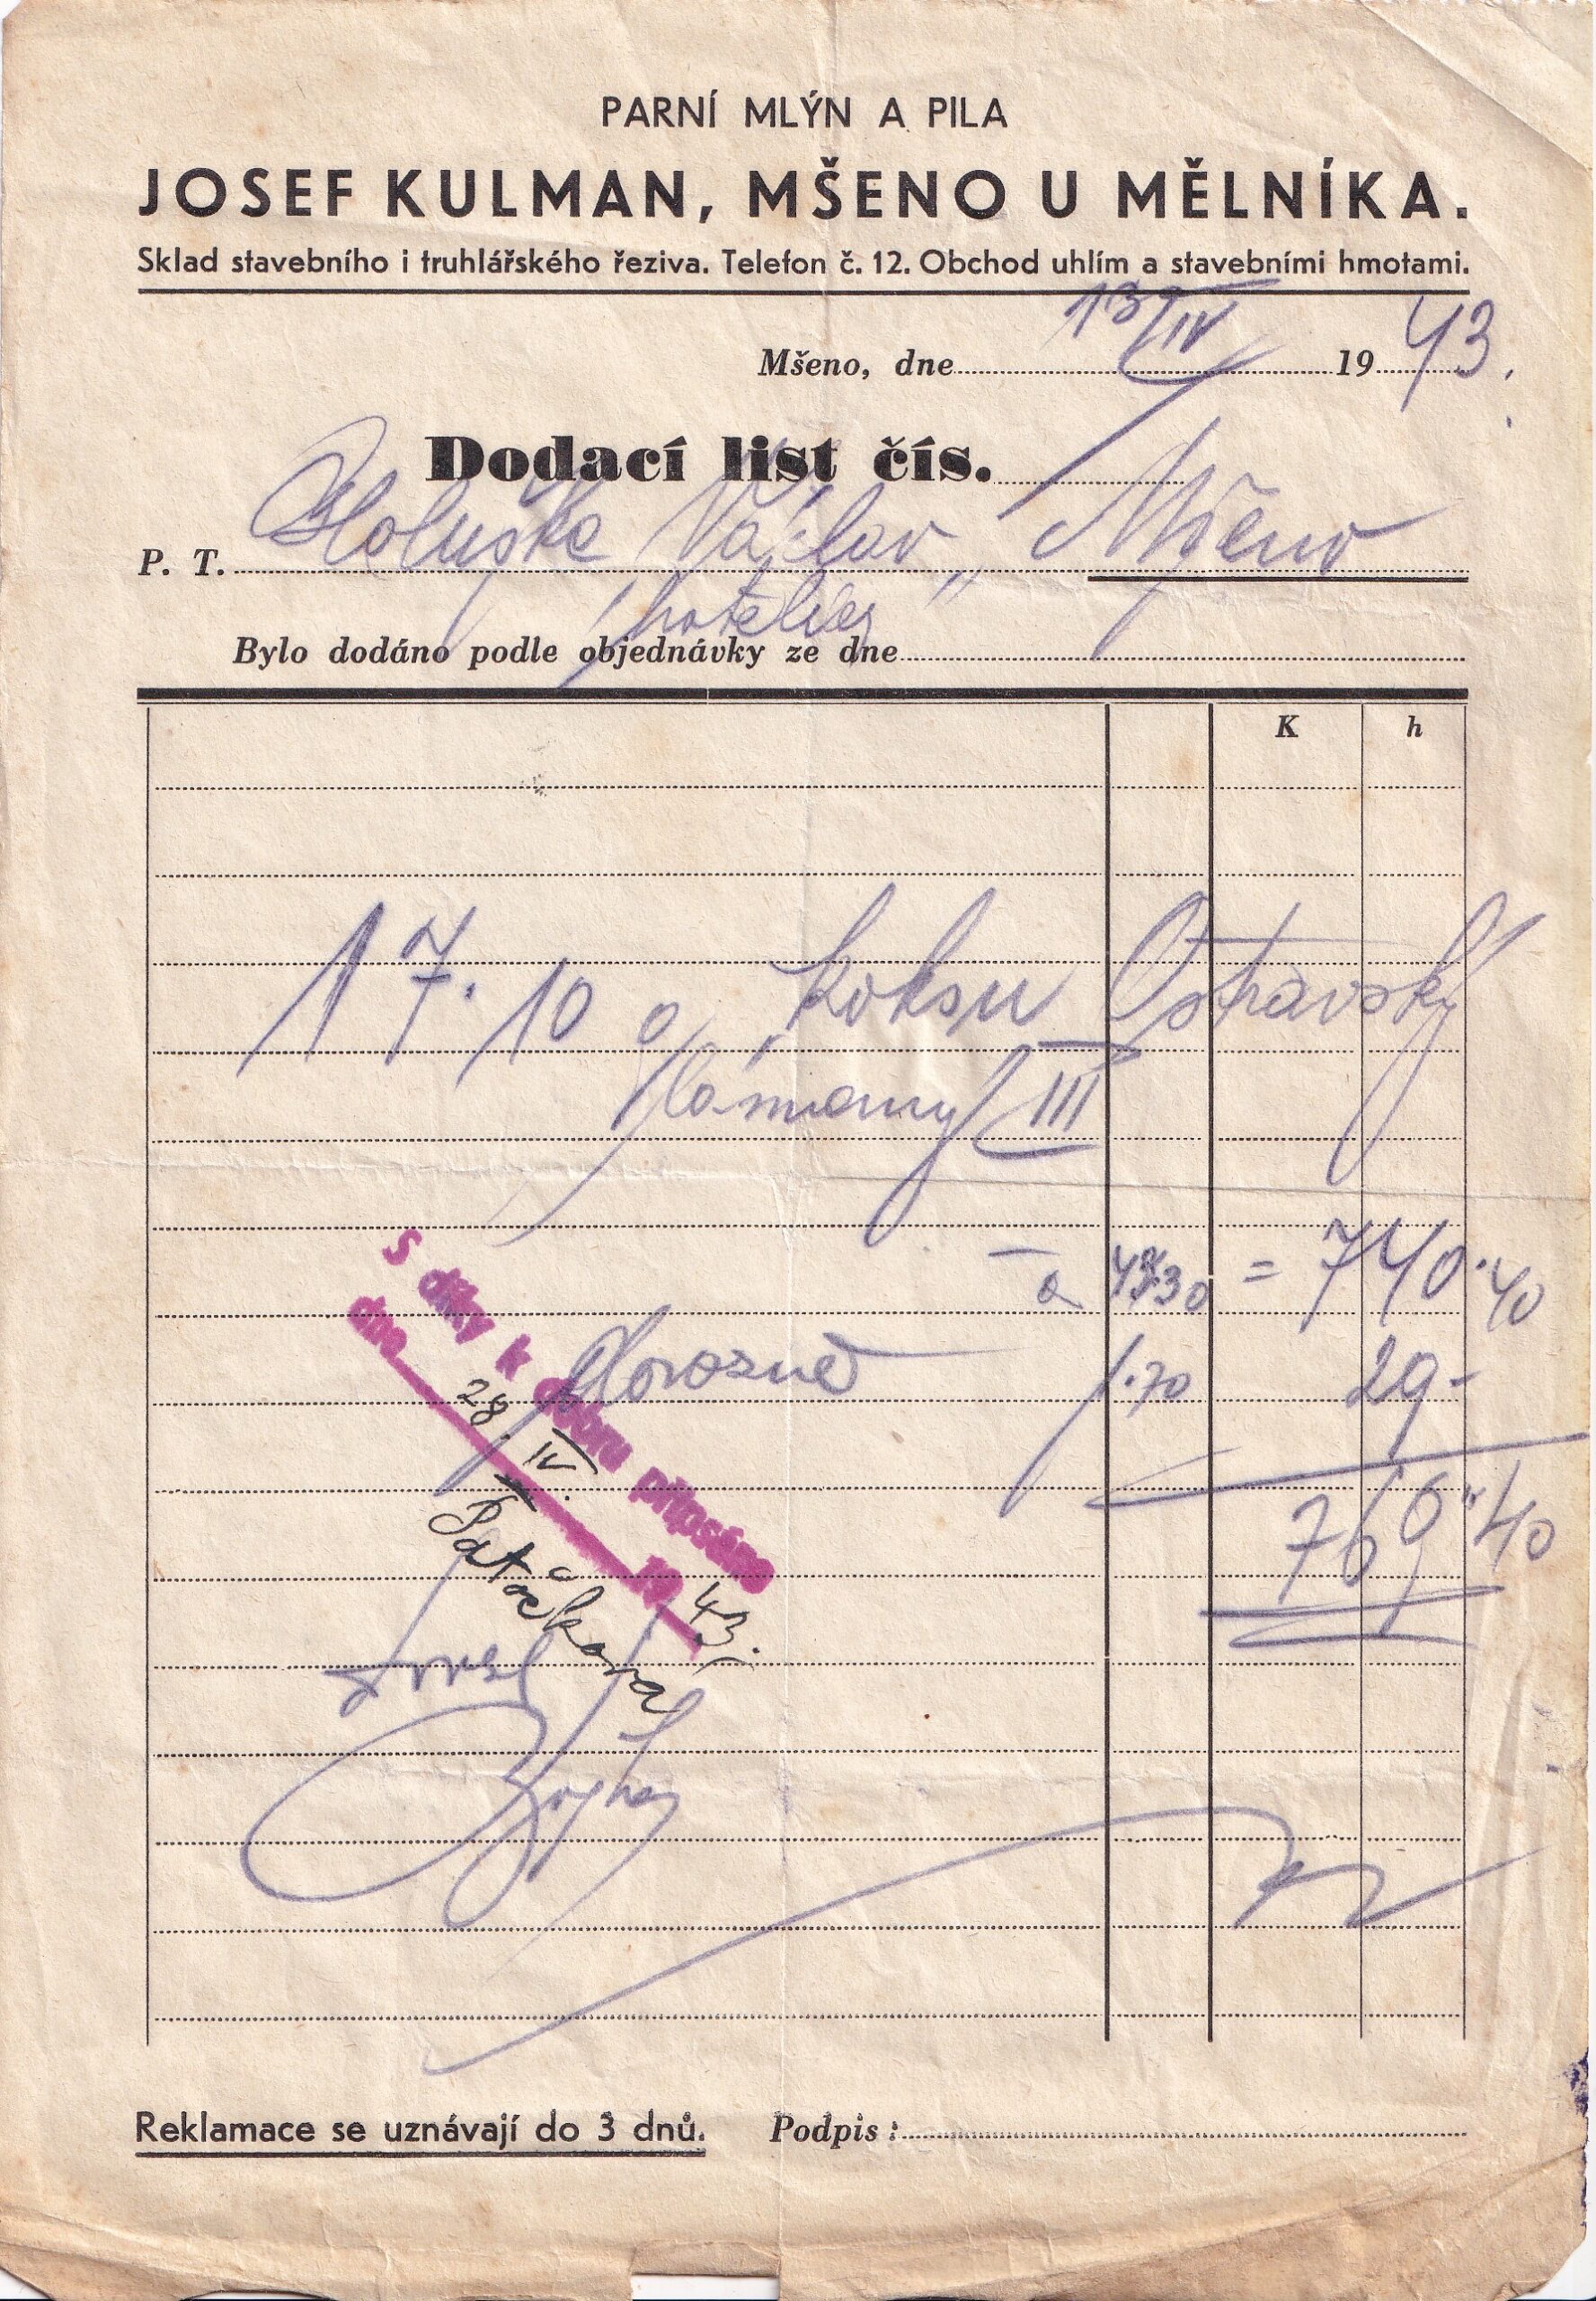 PARNÍ MLÝN A PILA
JOSEF KULMAN, MŠENO U MĚLNÍKA.
Sklad stavebního i truhlářského řeziva. Telefon č. 12. Obchod uhlím a stavebními hmotami.
Mšeno, dne 13/IV 19 43.
Dodací list čís.
P. T. Václav, Mšeno
hotelier
Bylo dodáno podle objednávky ze dne
K h
17.10 q koksu Ostravský
lámaný III
a 43.30 = 740.40
1.70 29-
769.40
S díky k dobru připsáno
dne 28. IV. 19 43.
Patočková
Reklamace se uznávají do 3 dnů. Podpis: